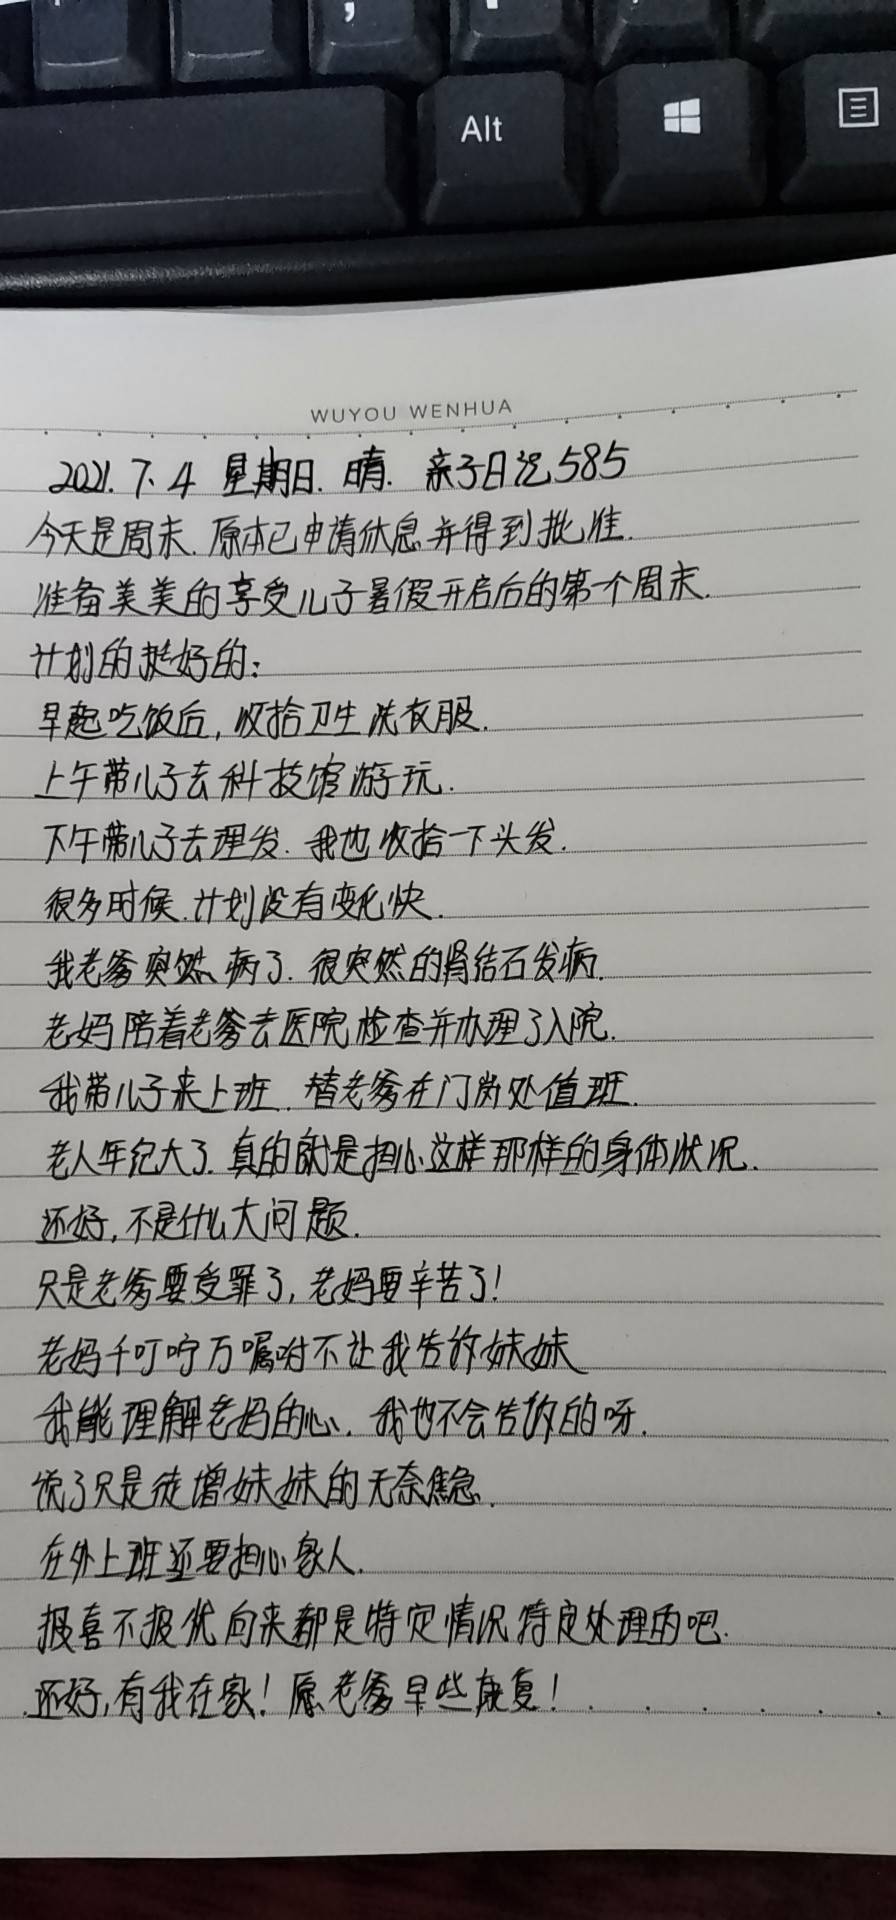 Alt
WUYOU WENHUA
2021.7.4 星期日.晴.亲子日记585
今天是周末.原本已申请休息并得到批准.
准备美美的享受儿子暑假开启后的第一个周末.
计划的挺好的:
早起吃饭后,收拾卫生洗衣服.
上午带儿子去科技馆游玩.
下午带儿子去理发.我也收拾一下头发.
很多时候.计划没有变化快.
我老爹突然病了.很突然的肾结石发病.
老妈陪着老爹去医院检查并办理了入院.
我带儿子来上班.替老爹在门岗处值班.
老人年纪大了.真的就是担心这样那样的身体状况.
还好,不是什么大问题.
只是老爹要受罪了,老妈要辛苦了!
老妈千叮咛万嘱咐不让我告诉妹妹
我能理解老妈的心.我也不会告诉的呀.
说了只是徒增妹妹的无奈焦急.
在外上班还要担心家人.
报喜不报忧向来都是特定情况特定处理的吧.
还好,有我在家!愿老爹早些康复!